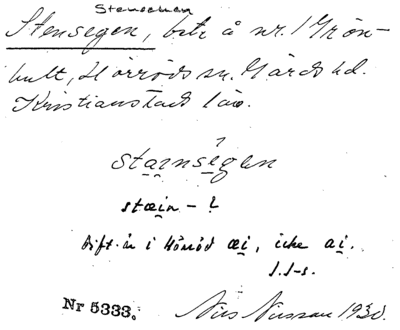 Stenschen
Stensegen, bebe å nr. 1 Grön-
hult, Hörröds sn. Gärds hd.
Kristianstads län.
stai̯nségen
stæi̯n – ?
Dift. är i Hörröd æi̯, icke ai̯.
I. I-s.
Nr 5333.
Nils Nilsson 1930.